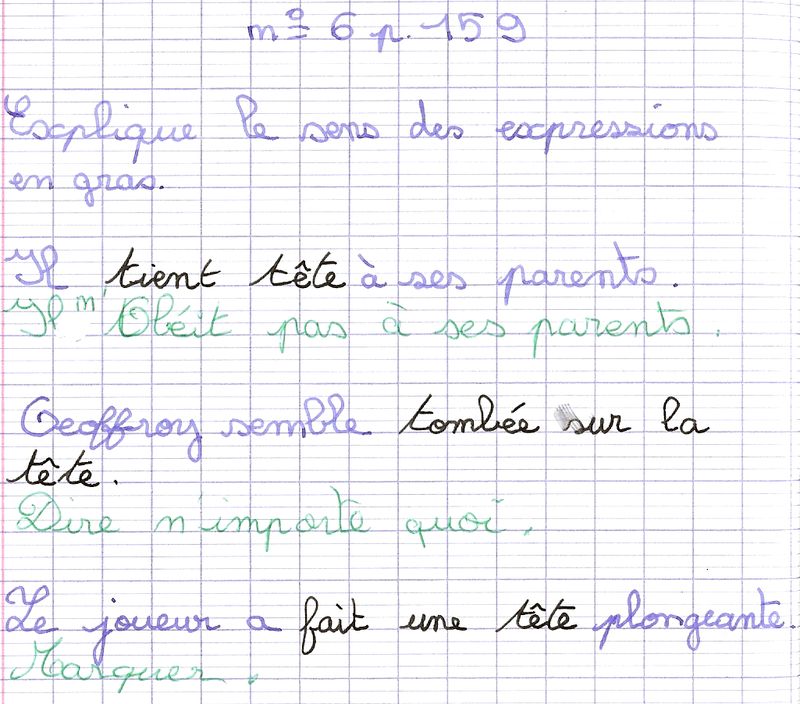 n° 6 p. 159
Explique le sens des expressions
en gras.
Il tient tête à ses parents.
Il n'Obéit pas à ses parents.
Geoffroy semble tombée sur la
tête.
Dire n'importe quoi.
Le joueur a fait une tête plongeante.
Marquer.